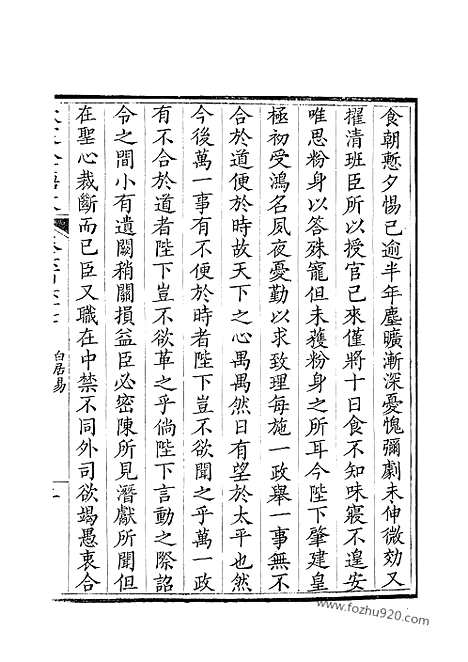 食朝慙夕惕已逾半年塵曠漸深憂愧彌劇未伸微効又
擢清班臣所以授官已來僅將十日食不知味寢不遑安
唯思粉身以答殊寵但未獲粉身之所耳今陛下肇建皇
極初受鴻名夙夜憂勤以求致理每施一政舉一事無不
合於道便於時故天下之心顒顒然日有望於太平也然
今後萬一事有不便於時者陛下豈不欲聞之乎萬一政
有不合於道者陛下豈不欲革之乎倘陛下言動之際詔
令之間小有遺闕稍關損益臣必密陳所見潛獻所聞但
在聖心裁斷而已臣又職在中禁不同外司欲竭愚衷合
白居易
www.fozhu920.com